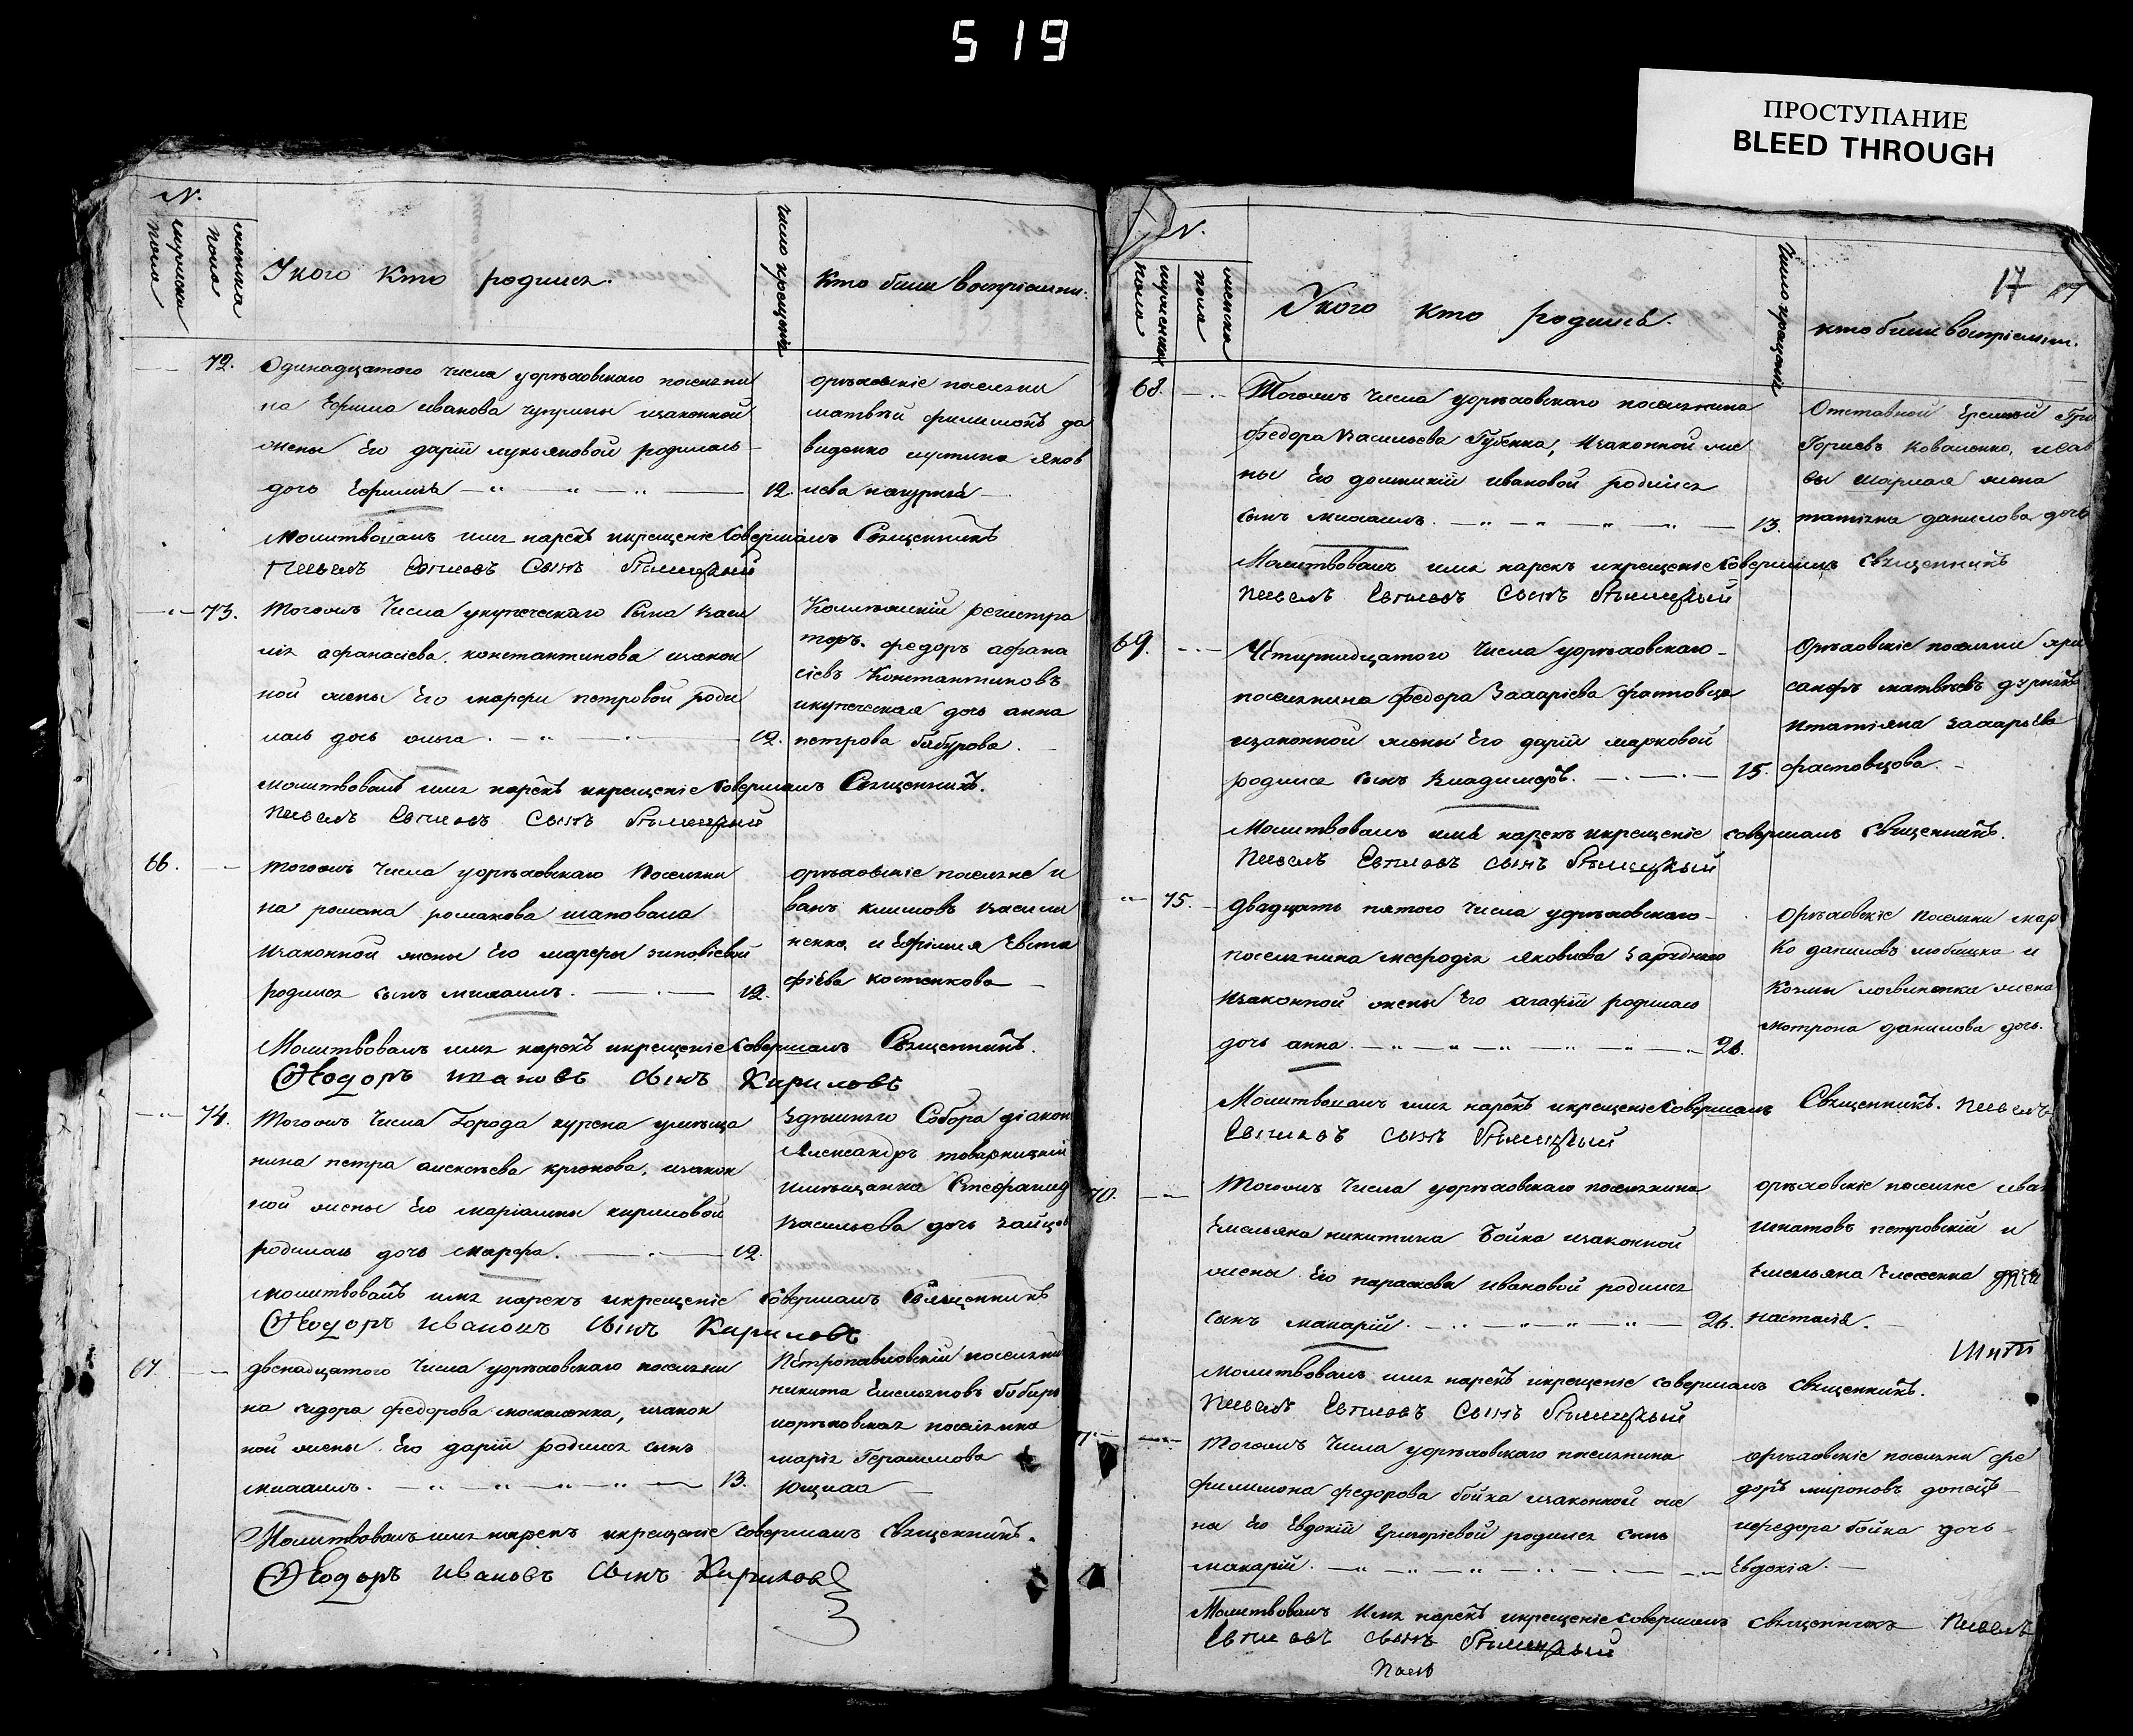 519
ПРОСТУПАНИЕ
BLEED THROUGH
N.
мужеска пола
женска пола
Укого кто родился.
число крещенія
кто были воспріемни.
72.
Одинадцатого числа уорѣховскаго поселяни
на Ефима иванова чуприны изаконной
жены Его дарій лукьяновой родилась
дочь Ефимія
12.
орѣховскіе поселяни
матвѣй филимонъ да
виденко иустина яков
лева
Молитвовалъ имя нарекъ икрещеніе совершалъ Священникъ
Павелъ Сынъ
73.
Тогожъ числа укупеческаго сына васи
лія афанасіева константинова изакон
ной жены Его марфи петровой роди
лась дочь ольга
12.
Колежскій регистра
торъ федоръ афана
сіевъ Константиновъ
икупеческая дочь анна
петрова бабурова.
молитвовалъ имя нарекъ икрещеніе совершалъ Священникъ.
Павелъ Сынъ
66.
тогожъ числа уорѣховскаго Поселяни
на романа романова шаповала
изаконной жены Его марфы зиновіевой
родился сынъ михаилъ.
12.
орѣховскіе поселяне и
ванъ климовъ васили
ненко, и Ефимія Евста
фіева костенкова
Молитвовалъ имя нарекъ икрещеніе совершалъ Священникъ.
Ѳеодоръ ивановъ сынъ Кириловъ
74.
Тогожъ числа Города курска умѣща
нина петра алексѣева крюкова, изакон
ной жены Его маріамны кириловой
родилась дочь марфа.
12.
Здѣшняго Собора діакон
Александръ товарницкій
имѣщанка Стефанид
васильева дочь зайцов
молитвовалъ имя нарекъ икрещеніе совершалъ Священникъ
Ѳеодоръ ивановъ сынъ Кириловъ
67.
двенадцатого числа уорѣховскаго поселяни
на сидора федорова москаленка, изакон
ной жены Его дарій родился сынъ
михаилъ.
13.
Петропавловскій поселянин
никита Емельяновъ
иорѣховская поселянка
марія Герасимова
Молитвовалъ имя нарекъ икрещеніе совершалъ священникъ.
Ѳеодоръ ивановъ сынъ Кириловъ
N.
мужеска пола
женска пола
Укого кто родился.
Число крещенія
кто были воспріемни.
17
68.
Тогожъ числа уорѣховскаго поселянина
Федора Васильева Губенка, изаконной же
ны Его домникій ивановой родился
сынъ михаилъ.
13.
Отставной Еремѣй Гри
Горіевъ Коваленко, исав
вы жена
татіяна данилова дочь
Молитвовалъ имя нарекъ икрещеніе совершилъ священникъ
Павелъ Сынъ
69.
Четырнадцатого числа уорѣховскаго
поселянина федора Захаріева фастовца
изаконной жены Его дарій марковой
родился сынъ Владимеръ.
15.
Орѣховскіе поселяни
матвѣевъ
итатіяна захарьева
фастовцова.
Молитвовалъ имя нарекъ икрещеніе совершалъ священникъ.
Павелъ сынъ
75.
двадцать пятого числа уорѣховскаго
поселянина мефодія яковлева
изаконной жены Его агафій родилась
дочь анна.
26.
Орѣховскіе поселяни мар
Ко даниловъ и
Козмы логвиненка жена
мотрона данилова дочь.
Молитвовалъ имя нарекъ икрещеніе совершалъ Священникъ. Павелъ
сынъ
70.
Тогожъ числа уорѣховскаго поселянина
Емельяна никитина Бойка изаконной
жены Его параскеви ивановой родился
сынъ макарій.
26.
орѣховскіе поселяне иван
игнатовъ петровскій и
Емельяна дочь
настасія.
молитвовалъ имя нарекъ икрещеніе совершалъ священникъ.
Павелъ Сынъ
Тогожъ числа уорѣховскаго поселянина
филимона федорова бойка изаконной же
на Его Евдокій григоріевой родился сынъ
макарій.
орѣховскіе поселяни фе
доръ мироновъ
ифедора бойка дочь
Евдокія.
Молитвовалъ имя нарекъ икрещеніе совершалъ священникъ Павелъ
сынъ